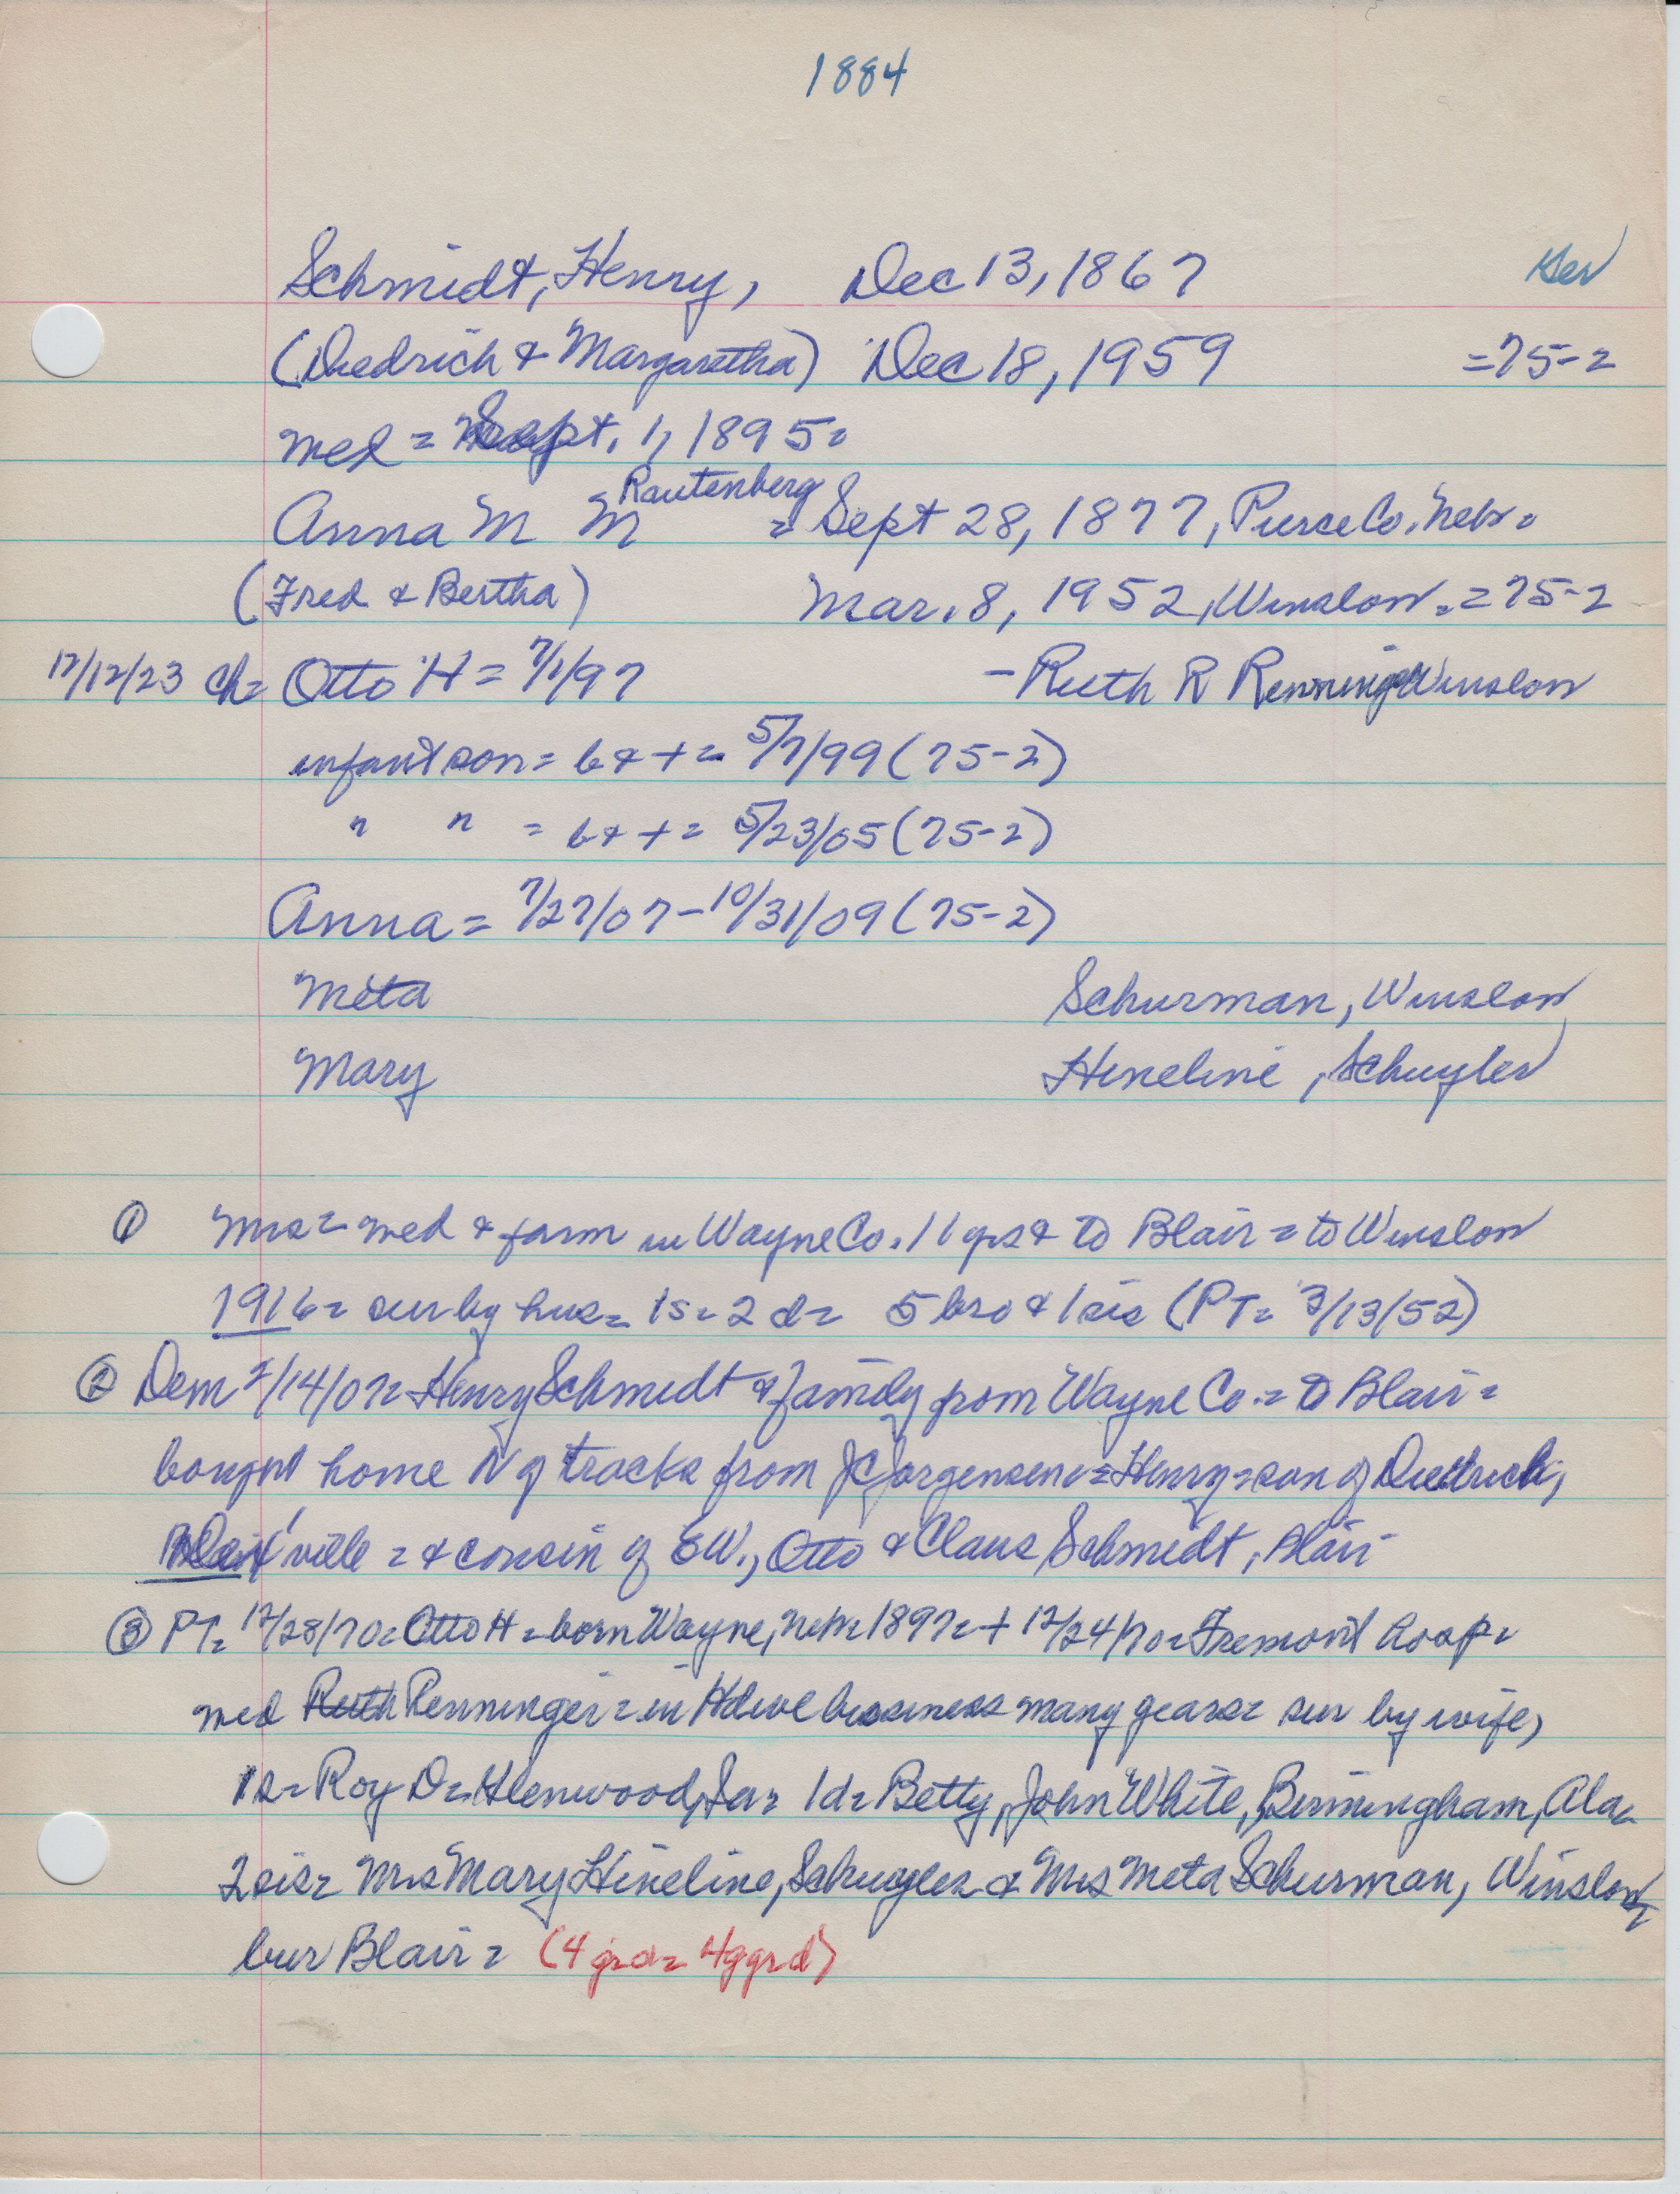 1884
Schmidt, Henry, Dec 13, 1867
(Diedrich & Margaretha) Dec 18, 1959 = 75-2
med = Sept. 1, 1895 =
Rautenberg
Anna M M = Sept 28, 1877, Pierce Co. Neb =
(Fred & Bertha) Mar. 8, 1952, Winslow. = 75-2
12/12/23 ch = Otto H = 7/1/97 - Ruth R Renninger Winslow
infant son = b & + = 5/7/99 (75-2)
" " = b & + = 5/23/05 (75-2)
Anna = 7/27/07 - 10/31/09 (75-2)
Meta Schurman, Winslow
Mary Hineline, Schuyler
① Mrs = med & farm in Wayne Co. 11 yrs & to Blair = to Winslow
1916 = sur by hus = 1s = 2 d = 5 bro & 1 sis (PT = 3/13/52)
② Dem 2/14/07 = Henry Schmidt & family from Wayne Co. = to Blair =
bought home N of tracks from JC Jorgensen = Henry = son of Diedrich,
ville = & cousin of EW., Otto & Claus Schmidt, Blair
③ PT = 12/28/70 = Otto H = born Wayne, Neb = 1897 = + 12/24/70 = Fremont hosp =
med Ruth Renninger = in Hdwe business many years = sur by wife,
1s = Roy D = Glenwood, Ia = 1d = Betty, John White, Birmingham, Ala =
2 sis = Mrs Mary Hineline, Schuyler & Mrs Meta Schurman, Winslow =
bur Blair = (4 grd = 4 ggrd)